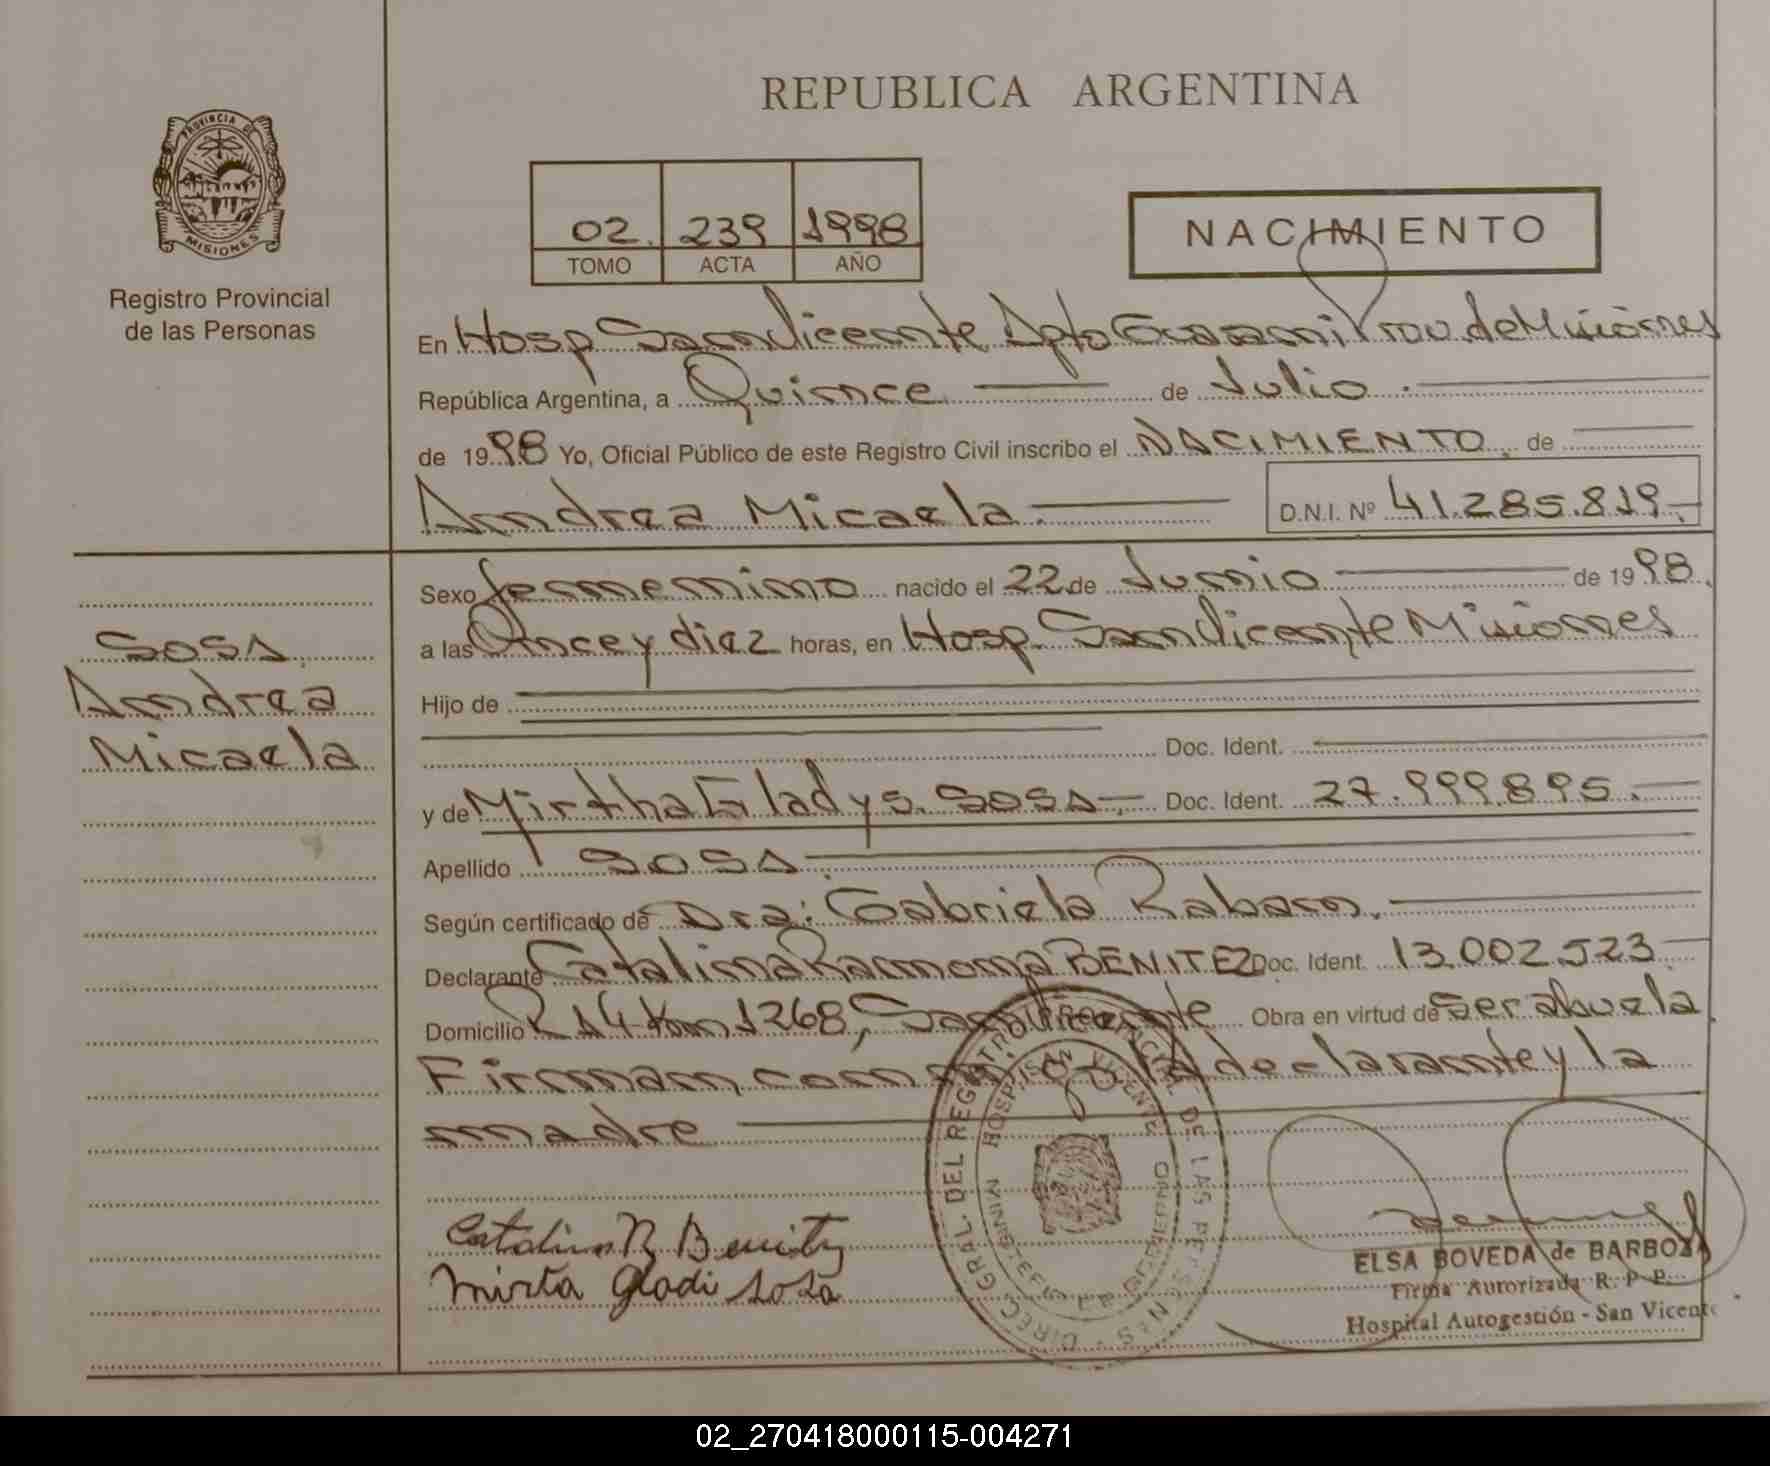 REPUBLICA ARGENTINA
PROVINCIA DE
MISIONES
Registro Provincial
de las Personas
02. 239 1998
TOMO ACTA AÑO
NACIMIENTO
En Hosp San Vicente Dpto Guarani Prov. de Misiones
República Argentina, a Quince de Julio
de 1998 Yo, Oficial Público de este Registro Civil inscribo el NACIMIENTO de
Andrea Micaela D.N.I. Nº 41.285.819.-
Sexo femenino nacido el 22 de Junio de 1998.
a las Once y diez horas, en Hosp. San Vicente Misiones
Hijo de
Doc. Ident.
y de Mirtha Gladys SOSA.- Doc. Ident. 27.999.895.
Apellido SOSA.
Según certificado de Dra: Gabriela
Declarante Catalina Ramona BENITEZ Doc. Ident. 13.002.523.
Domicilio R 14 Km 1268, San Vicente Obra en virtud de Ser abuela
Firman, con la declarante y la
madre
SOSA.
Andrea
Micaela
Catalina R Benitez
Mirta Gladi Sosa
DIREC. GRAL. DEL REGISTRO PROVINCIAL DE LAS PERSONAS
HOSP. SAN VICENTE
MINISTERIO DE GOBIERNO
ELSA BOVEDA de BARBOZA
Firma Autorizada R. P. P.
Hospital Autogestión - San Vicente
02_270418000115-004271